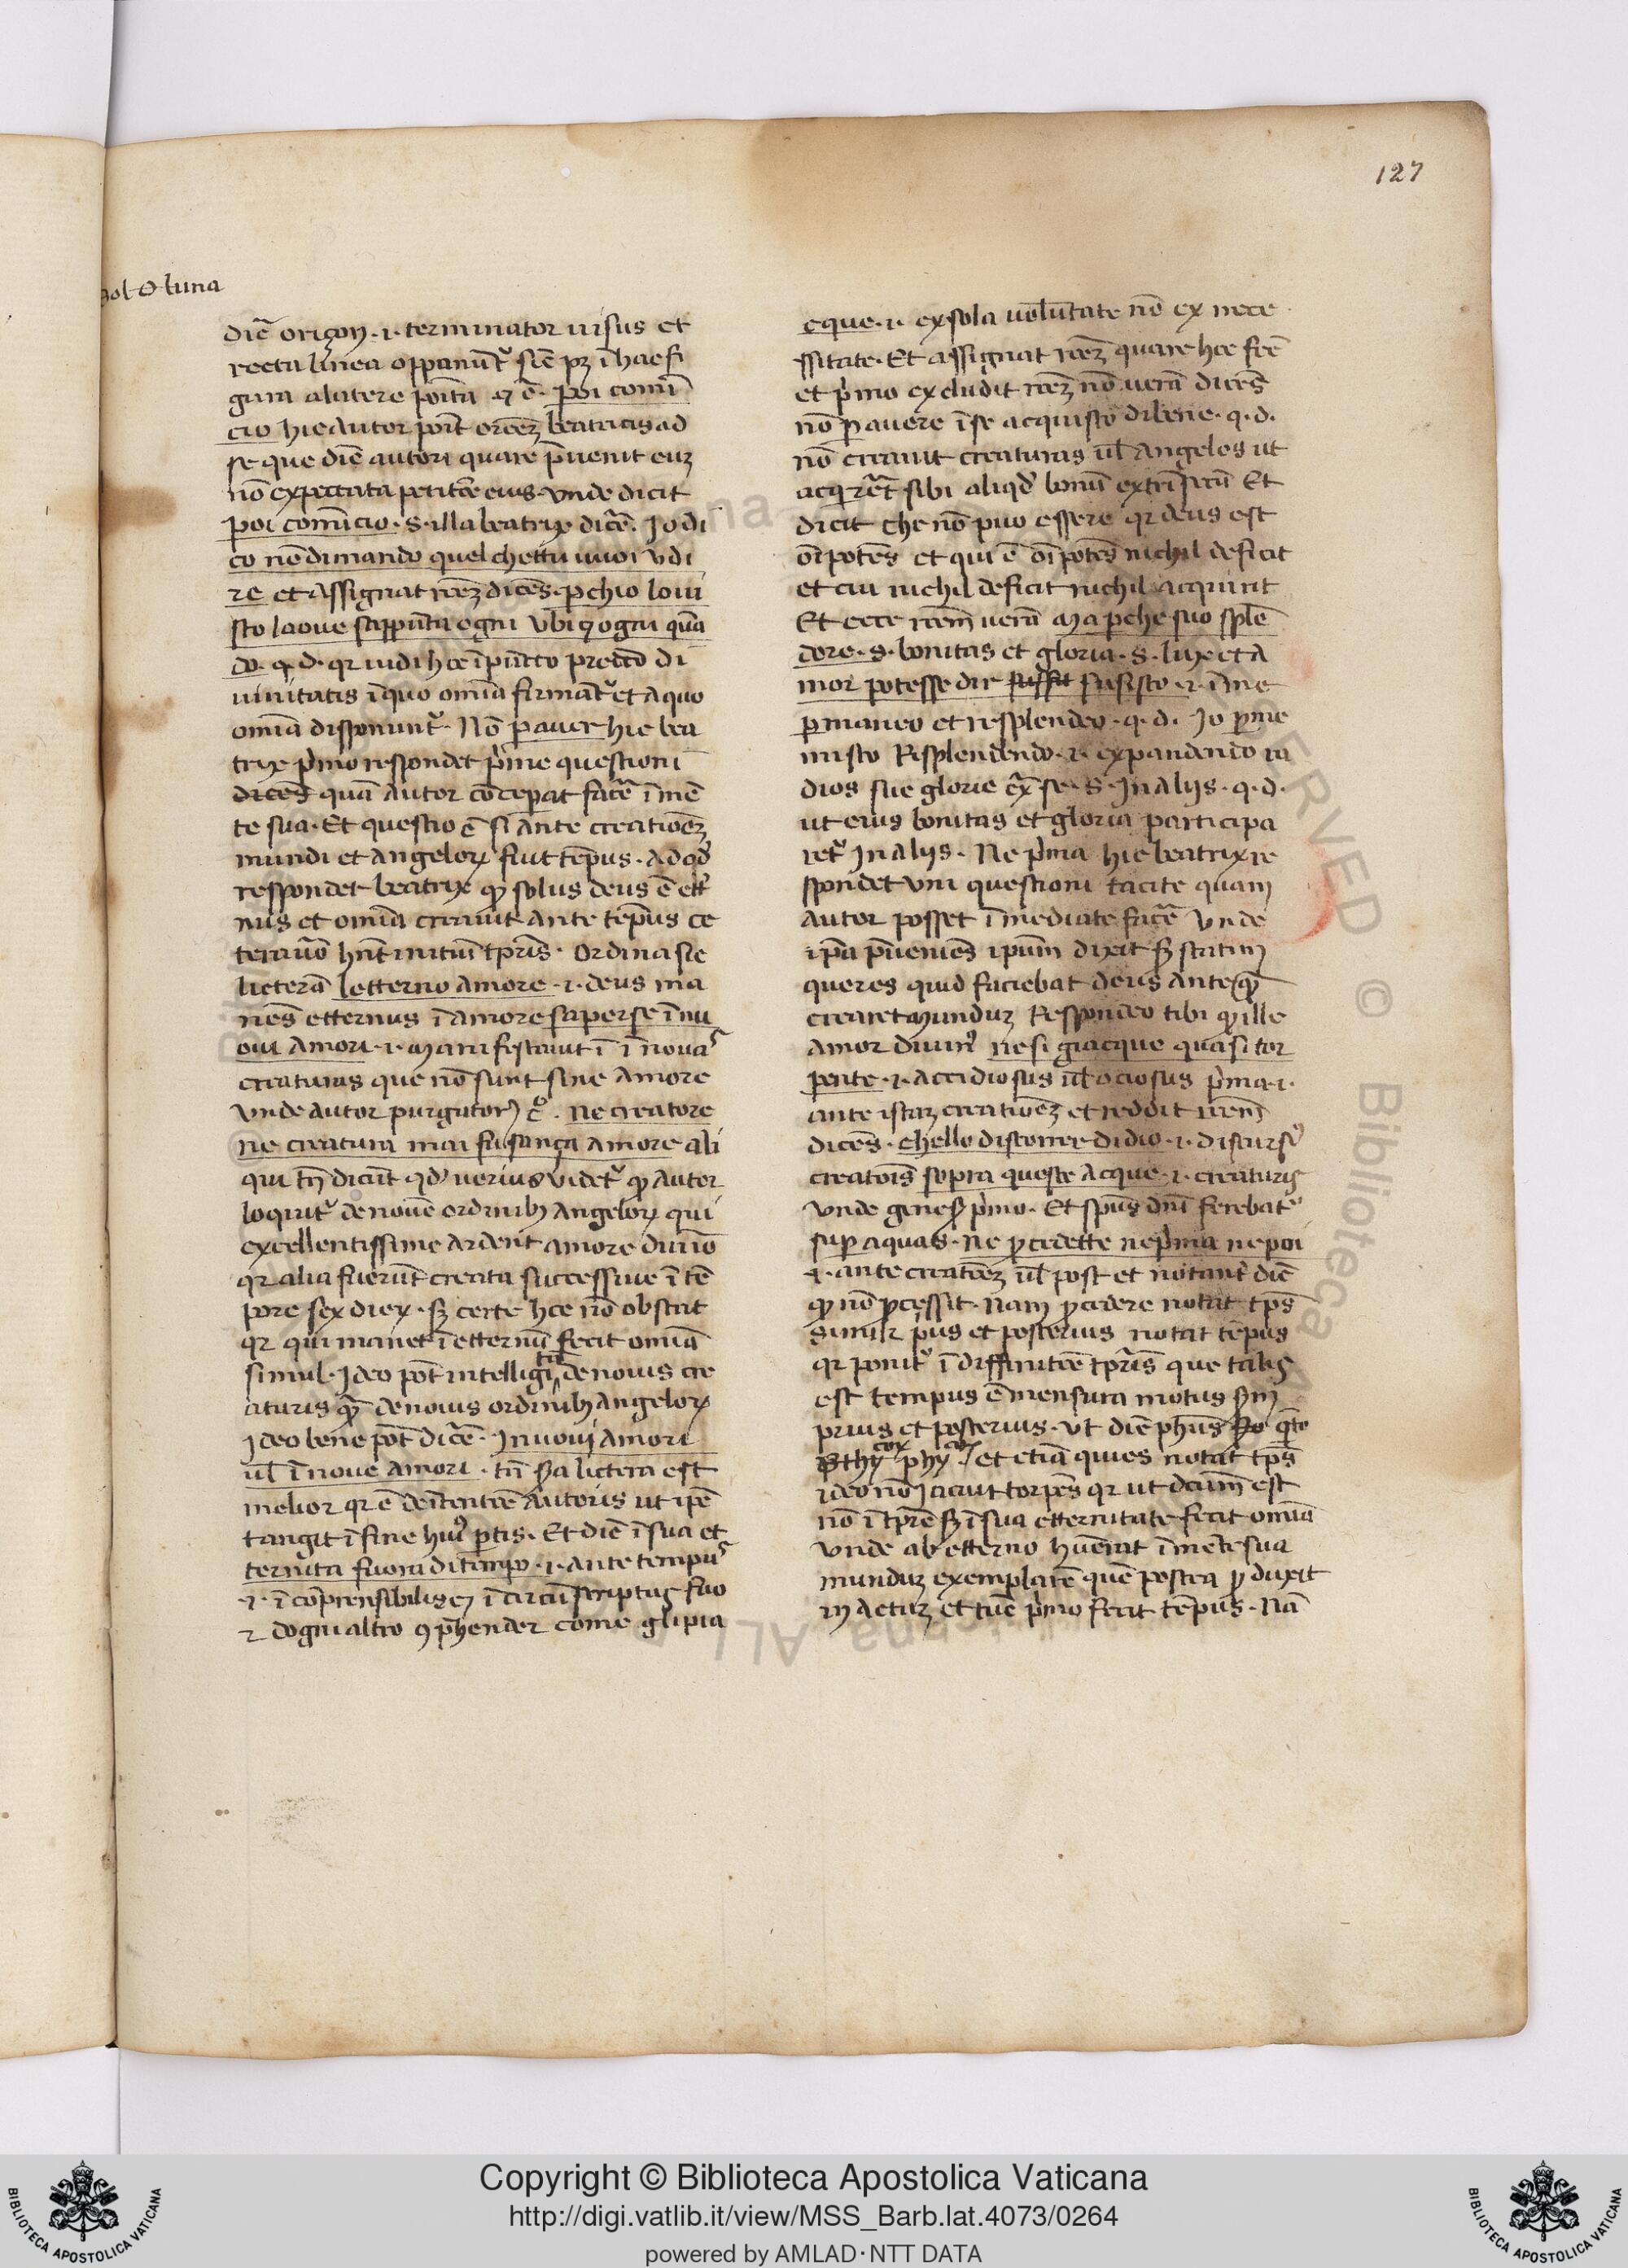 127
sol ⊙ luna
dic̄ oriçon .i. terminator uisus et
recta linea opponunt᷑ sic̄ pꝫ ī hac fi
gura a latere poīta ⁊ c̄. poi comī
cio hic autor poīt orōeꝫ beatricis ad
se que dic̄ autori quare p̄uenit euꝫ
nō expectata petitōe eius. Vnde dicit
poi comīcio .s. illa beatrix dicē. Io di
co nō dimando quel chettu uuoi vdi
re et assignat rōeꝫ dicēs. ꝑchio lo ui
sto laoue sappūta ogni Vbi ⁊ ogni quā
do. q. d. qr uidi hoc ī pūcto preto di
uinitatis ī quo omīa firmāt᷑ et a quo
omīa disponunt᷑. Nō ꝑ auer hic bea
trix p̄mo respondet p̄me questioni
dicēs quā autor cōceperat facē ī mē
te sua. Et questio ē si ante creatiōeꝫ
mundi et angeloꝝ fuit tēpus. Ad qd̄
respondet beatrix ꝙ solus deus ē ett̄
nus et omīa creauit ante tēpus ce
tera uō hn̄t initiū tp̄ris. Ordina sic
licterā letterno amore .i. deus ma
nēs etternus ī amore saperse ī nu
oui amori .i. manifistauit ī ī noua᷑
creaturas que nō sunt sine amore
vnde autor purgatorꝫ c̄. ne creatore
ne creatura mai fu sança amore ali
qui tn̄ dicūt qd̄ uerius videt᷑ ꝙ autor
loquit᷑ de nouē ordinibꝫ angeloꝝ qui
excellentissime ardent amore diuīo
qr alia fuerūt creata successiue ī tē
pore sex dieꝝ. sꝫ certe hoc nō obstat
qr qui manet ī etternū fecit omīa
simul. Ideo pōt intelligi tā de nouis cre
aturis qꝫ de nouis ordinibꝫ angeloꝝ
Ideo bene pōt dicē. In uouj amori
ul̄ ī noue amori. tn̄ p̄a lictera est
melior qr ē de ītentōe autoris ut ip̄e
tangit ī fine huiꝰ ptis. Et dic̄ ī sua et
ternita fuora di tempo .i. ante tempu᷑
.i. ī cōprensibilis eꝫ ī circūscriptus suo
.i. dogni altro ꝯp̄hender come gli pia
cque .i. ex sola uolūtate nō ex nece
ssitate. Et assignat rōeꝫ quare hoc fec̄
et p̄mo excludit rōeꝫ nō uerā dicēs
nō ꝑ auere ī se acquisto di bene. q. d.
nō creauit creaturas ul̄ angelos ut
acq̄rēt sibi aliqd̄ bonū extrīsecū Et
dicit che nō puo essere qr deus est
oīpotēs et qui ē oīpotēs nichil deficit
et cui nichil deficit nichil acquirit
Et ecce rōem uerā Ma ꝑche suo splē
dore .s. bonitas et gloria .s. lux et a
mor potesse dir susisto .i. ī me
ꝑmaneo et resplendeo .q. d. Io ꝑ me
misto Risplendendo .i. expandendo ra
dios sue glorie ex̄ se .s. In alijs .q. d.
ut eius bonitas et gloria participa
ret᷑ In alijs. Ne p̄ma hic beatrix re
spondet vni questioni tacite quam
autor posset ī mediate facē Vnde
ip̄a p̄ueniēs ipum̄ dixit sꝫ statim
queres quid faciebat deus anteqꝫ
crearet munduꝫ Respondeo tibi ꝙ ille
amor diuinꝰ ne si giacque quasi tor
pente .i. accidiosus ul̄ ociosus p̄ma .i.
ante istaꝫ creatiōeꝫ et reddit rōem
dicēs. chello discorrer di dio .i. discursꝰ
creatoris sopra queste acque .i. creaturis
vnde genesꝫ p̄mo. Et sp̄us dn̄i ferebat᷑
suꝑ aquas. Ne ꝓcedette ne p̄ma ne poi
.i. ante creatōeꝫ ul̄ post et notant᷑ dic̄
ꝙ nō ꝓcessit. Nam ꝓcedere notat tp̄s
simlr p̄us et posterius notat tēpus
qr ponit᷑ ī diffinitōe tp̄ris que talis
est tempus ē mensura motus sꝫm
prius et posterius. Vt dic̄ ph̄us q̄to
phycoꝝ. et etiā quies notat tp̄s
ideo nō iacuit torpēs qr ut dcūm est
nō ī tp̄re sꝫ ī sua etternitate fecit omīa
Vnde ab etterno hūerat ī mēte sua
munduꝫ exemplarē quē postea ꝓduxit
in actuꝫ et tūc p̄mo fecit tēpus. Nā
Copyright © Biblioteca Apostolica Vaticana
http://digi.vatlib.it/view/MSS_Barb.lat.4073/0264
powered by AMLAD·NTT DATA
BIBLIOTECA APOSTOLICA VATICANA
BIBLIOTECA APOSTOLICA VATICANA